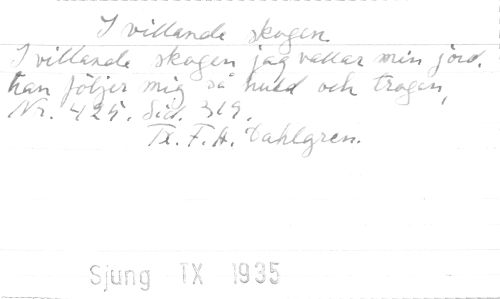 I villande skogen
I villande skogen jag vallar min jord.
han följer mig så huld och trogen,
Nr. 425. Sid. 319.
Tx. F.A. Dahlgren.
Sjung IX 1935